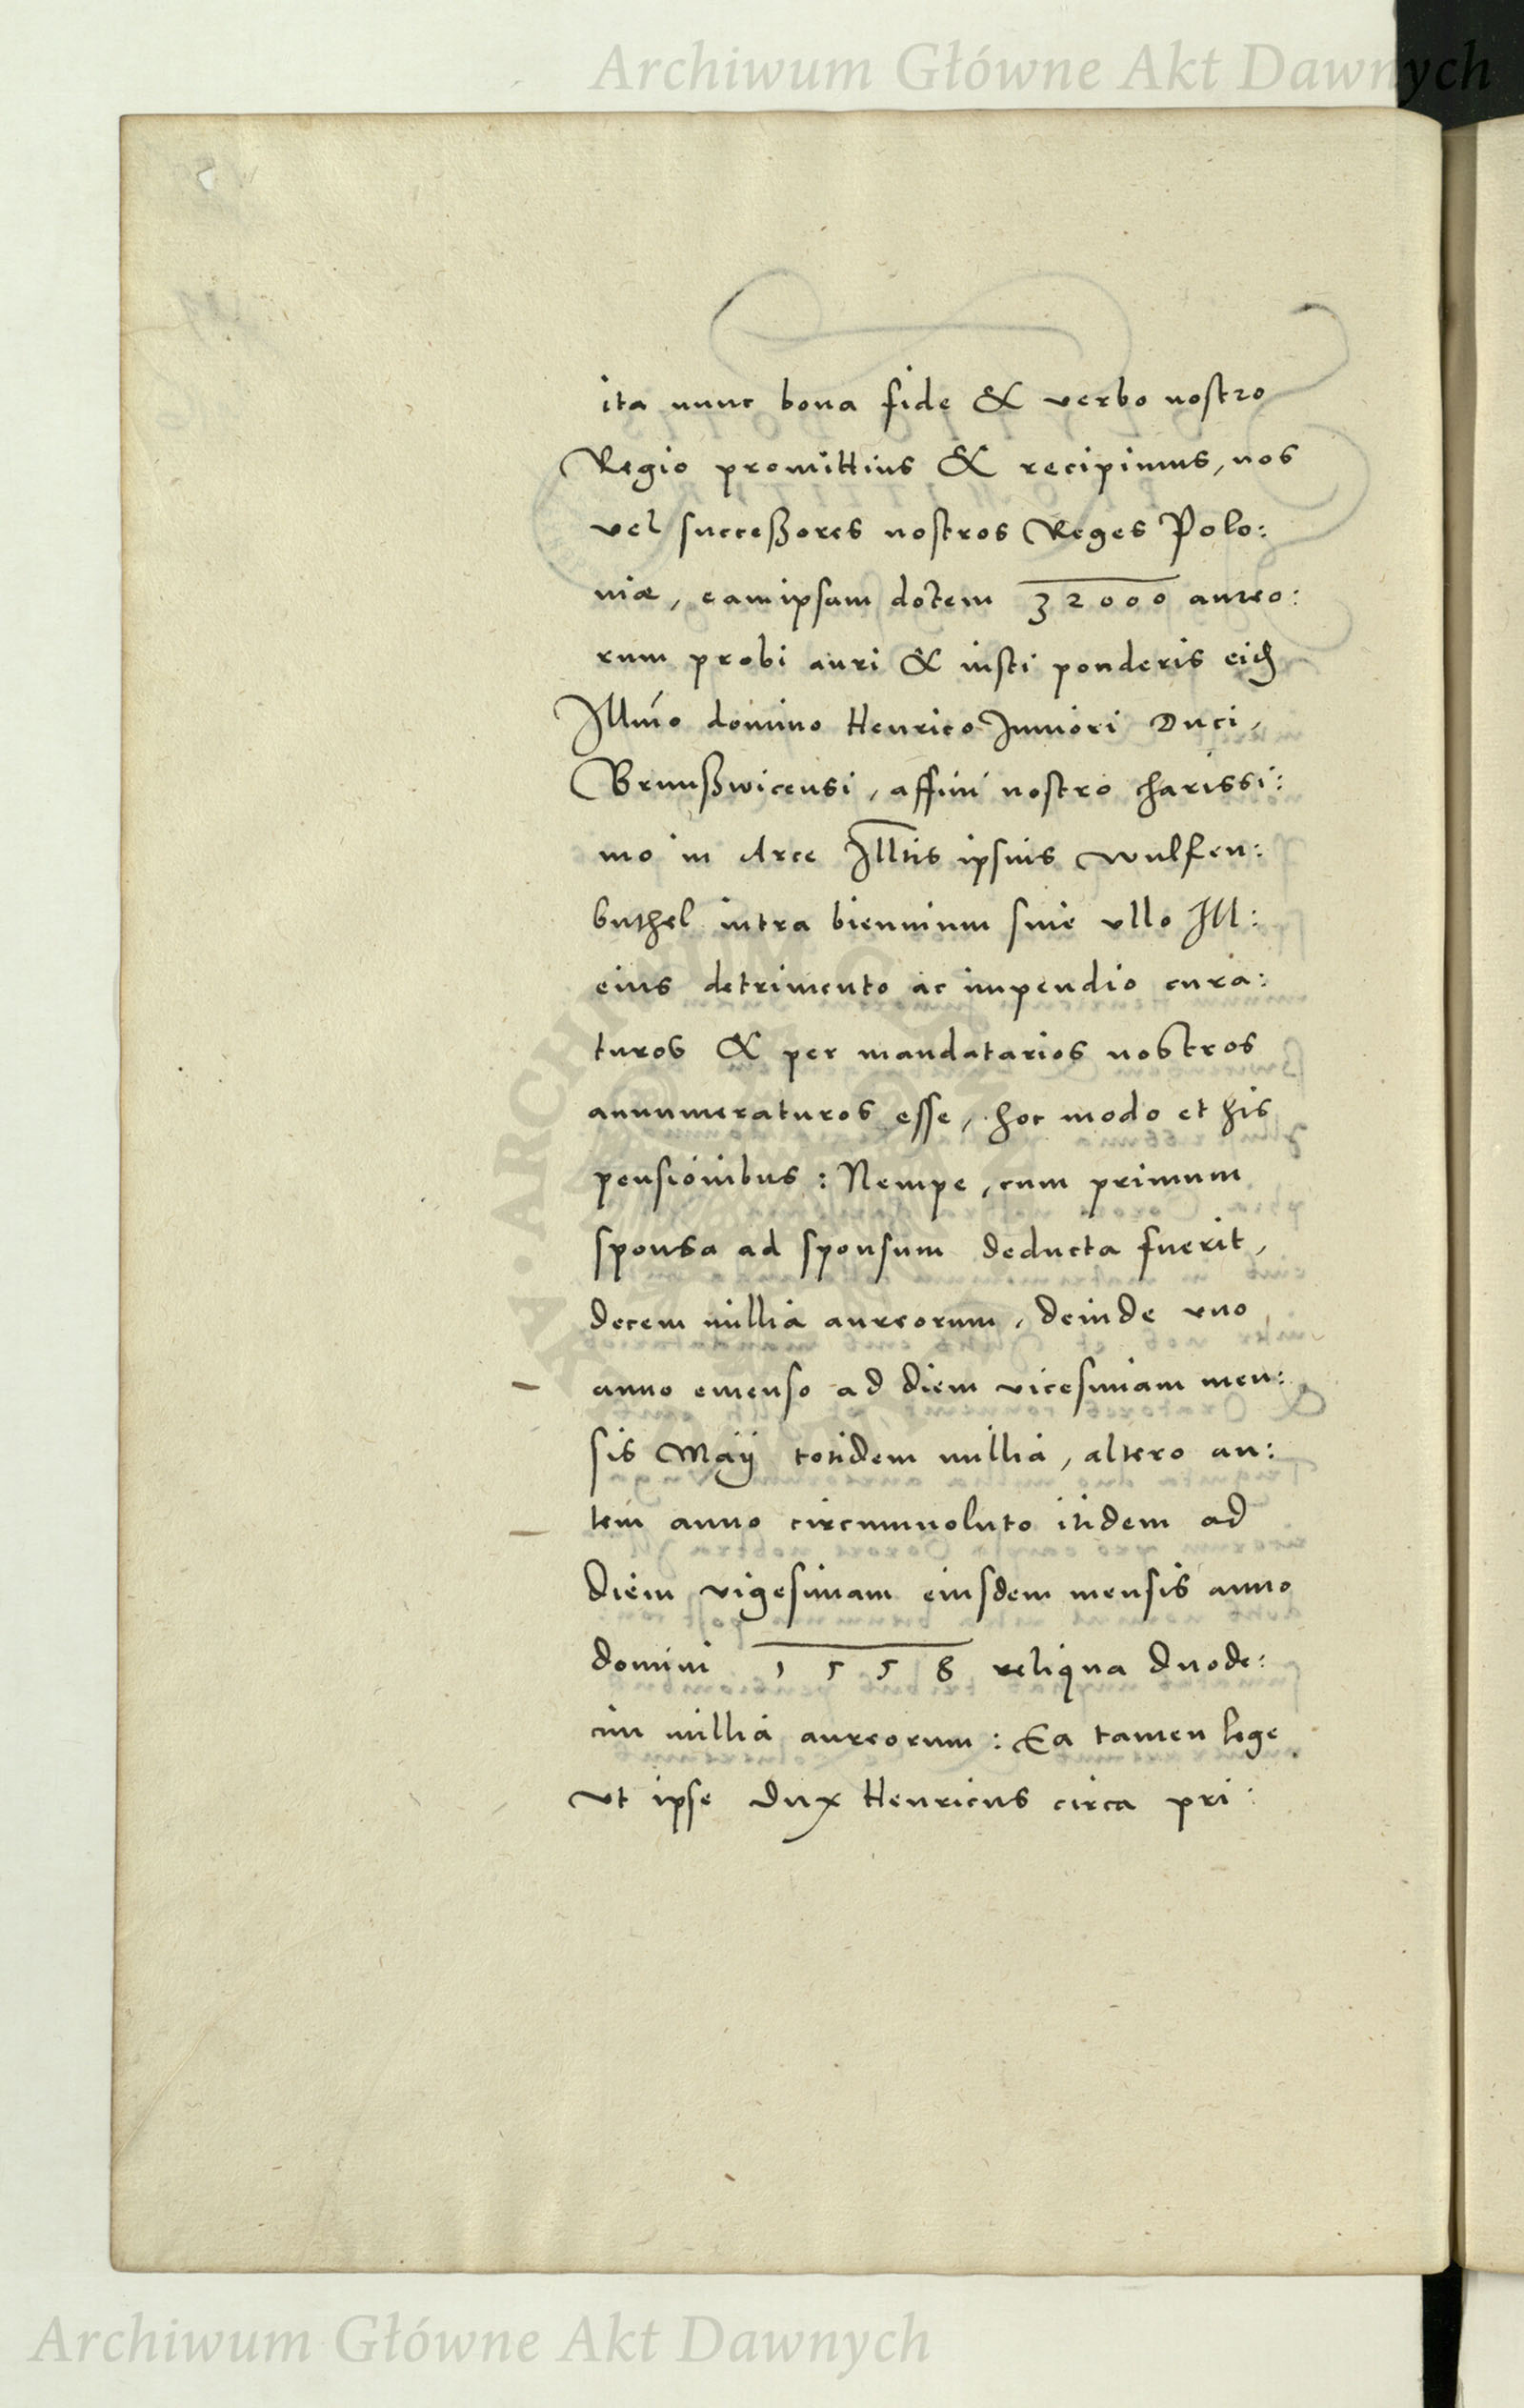 Archiwum Główne Akt Dawnych
ita nunc bona fide & verbo nostro
Regio promittius & recipimus, nos
vel successores nostros Reges Polo:
niæ, eamipsam dotem 32000 aureo:
rum probi auri & iusti ponderis eid
Illmo domino Henrico Iuniori Duci,
Brunßwicensi, affini nostro charissi:
mo in Arce Illtis ipsius Wulfen:
buthel intra biennium sine ullo Ill:
eius detrimento ac impendio cura:
turos & per mandatarios nostros
annumeraturos esse, hoc modo et his
pensionibus: Nempe, cum primum
sponsa ad sponsum deducta fuerit,
decem millia aureorum, deinde uno
anno emenso ad diem vicesimam men:
sis Maij totidem millia, altero au:
tem anno circumuoluto itidem ad
diem vigesimam eiusdem mensis anno
domini 1558 reliqua duode:
cim millia aureorum: Ea tamen lege
ut ipse Dux Henricus circa pri:
Archiwum Główne Akt Dawnych